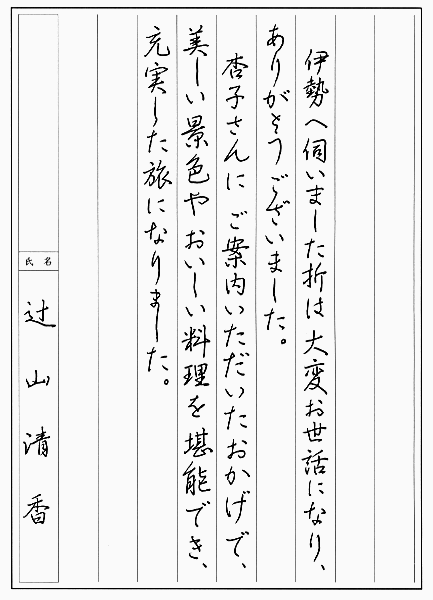 伊勢へ伺いました折は大変お世話になり、
ありがとうございました。
杏子さんにご案内いただいたおかげで、
美しい景色やおいしい料理を堪能でき、
充実した旅になりました。
氏名
辻山清香